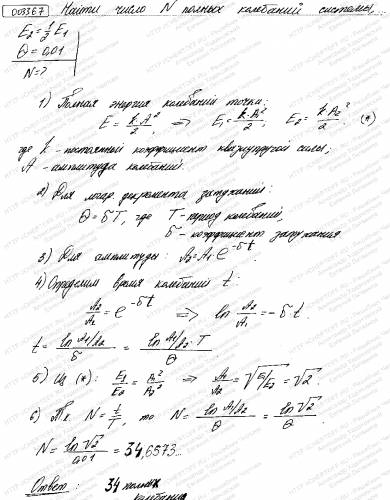 003367 Найти число N полных колебаний системы, ...
E₂ = 1/2 E₁
Θ = 0,01
N = ?
1) Полная энергия колебаний точки:
E = k·A²/2, => E₁ = k·A₁²/2, E₂ = k·A₂²/2. (*)
где k - постоянный коэффициент квазиупругой силы;
A - амплитуда колебаний.
2) Для логар. декремента затухания:
Θ = δT, где T - период колебаний,
δ - коэффициент затухания
3) Для амплитуды: A₂ = A₁·e^(-δt)
4) Определим время колебаний t:
A₂/A₁ = e^(-δt) => ln A₂/A₁ = -δ·t.
t = ln A₁/A₂ / δ = ln A₁/A₂ · T / Θ
5) Из (*): E₁/E₂ = A₁²/A₂² => A₁/A₂ = √(E₁/E₂) = √2.
6) Т.к. N = t/T, то N = ln A₁/A₂ / Θ = ln √2 / Θ.
N = ln √2 / 0,01 = 34,6573...
Ответ: 34 полных
колебания